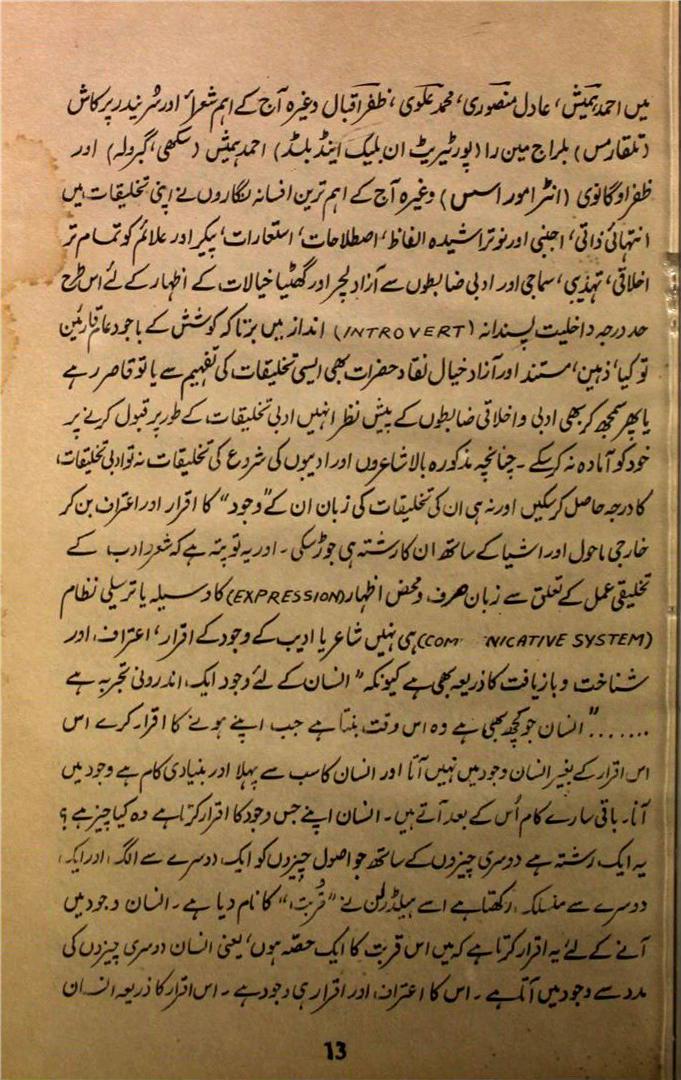 میں احمد ہمیش، عادل منصوری، محمد علوی، ظفر اقبال وغیرہ آج کے اہم شعرأ اور سُریندر پرکاش
(تلقارمس) بلراج مین را (پورٹیریٹ ان بلیک اینڈ بلڈ) احمد ہمیش (مکھی، گبرولہ) اور
ظفر اوگانوی (انٹرا مورا سس) وغیرہ آج کے اہم ترین افسانہ نگاروں نے اپنی تخلیقات میں
انتہائی ذاتی، اجنبی اور نو تراشیدہ الفاظ، اصطلاحات، استعارات، پیکر اور علائم کو تمام تر
اخلاقی، تہذیبی، سماجی اور ادبی ضابطوں سے آزاد لچر اور گھٹیا خیالات کے اظہار کے لئے اس طرح
حد درجہ داخلیت پسندانہ (INTROVERT) انداز میں برتا کہ کوشش کے باجود عام قارئین
تو کیا، ذہین، مستند اور آزاد خیال نقاد حضرات بھی ایسی تخلیقات کی تفہیم سے یا تو قاصر رہے
یا پھر سمجھ کر بھی ادبی و اخلاقی ضابطوں کے پیش نظر انہیں ادبی تخلیقات کے طور پر قبول کرنے پر
خود کو آمادہ نہ کر سکے۔ چنانچہ مذکورہ بالا شاعروں اور ادیبوں کی شروع کی تخلیقات نہ تو ادبی تخلیقات،
کا درجہ حاصل کر سکیں اور نہ ہی ان کی تخلیقات کی زبان ان کے "وجود" کا اقرار اور اعتراف بن کر
خارجی ماحول اور اشیا کے ساتھ ان کا رشتہ ہی جوڑ سکی۔ اور یہ تو پتہ ہے کہ شعر و ادب کے
تخلیقی عمل کے تعلق سے زبان صرف و محض اظہار (EXPRESSION) کا وسیلہ یا ترسیلی نظام
(COM NICATIVE SYSTEM) ہی نہیں شاعر یا ادیب کے وجود کے اقرار، اعتراف، اور
شناخت و بازیافت کا ذریعہ بھی ہے کیونکہ "انسان کے لئے وجود ایک، اندرونی تجربہ ہے
......." انسان جو کچھ بھی ہے وہ اس وقت بنتا ہے جب اپنے ہونے کا اقرار کرے اس
اس اقرار کے بغیر انسان وجود میں نہیں آتا اور انسان کا سب سے پہلا اور بنیادی کام ہے وجود میں
آنا۔ باقی سارے کام اُس کے بعد آتے ہیں۔ انسان اپنے جس وجود کا اقرار کرتا ہے وہ کیا چیز ہے؟
یہ ایک رشتہ ہے دوسری چیزوں کے ساتھ جو اصول چیزوں کو ایک دوسرے سے الگ، اور ایک
دوسرے سے منسلک، رکھتا ہے اسے ہیلڈرلن نے "قُربت" کا نام دیا ہے۔ انسان وجود میں
آنے کے لئے یہ اقرار کرتا ہے کہ میں اس قربت کا ایک حصّہ ہوں، یعنی انسان دوسری چیزوں کی
مدد سے وجود میں آتا ہے۔ اس کا اعتراف اور اقرار ہی وجود ہے۔ اس اقرار کا ذریعہ انسان
13